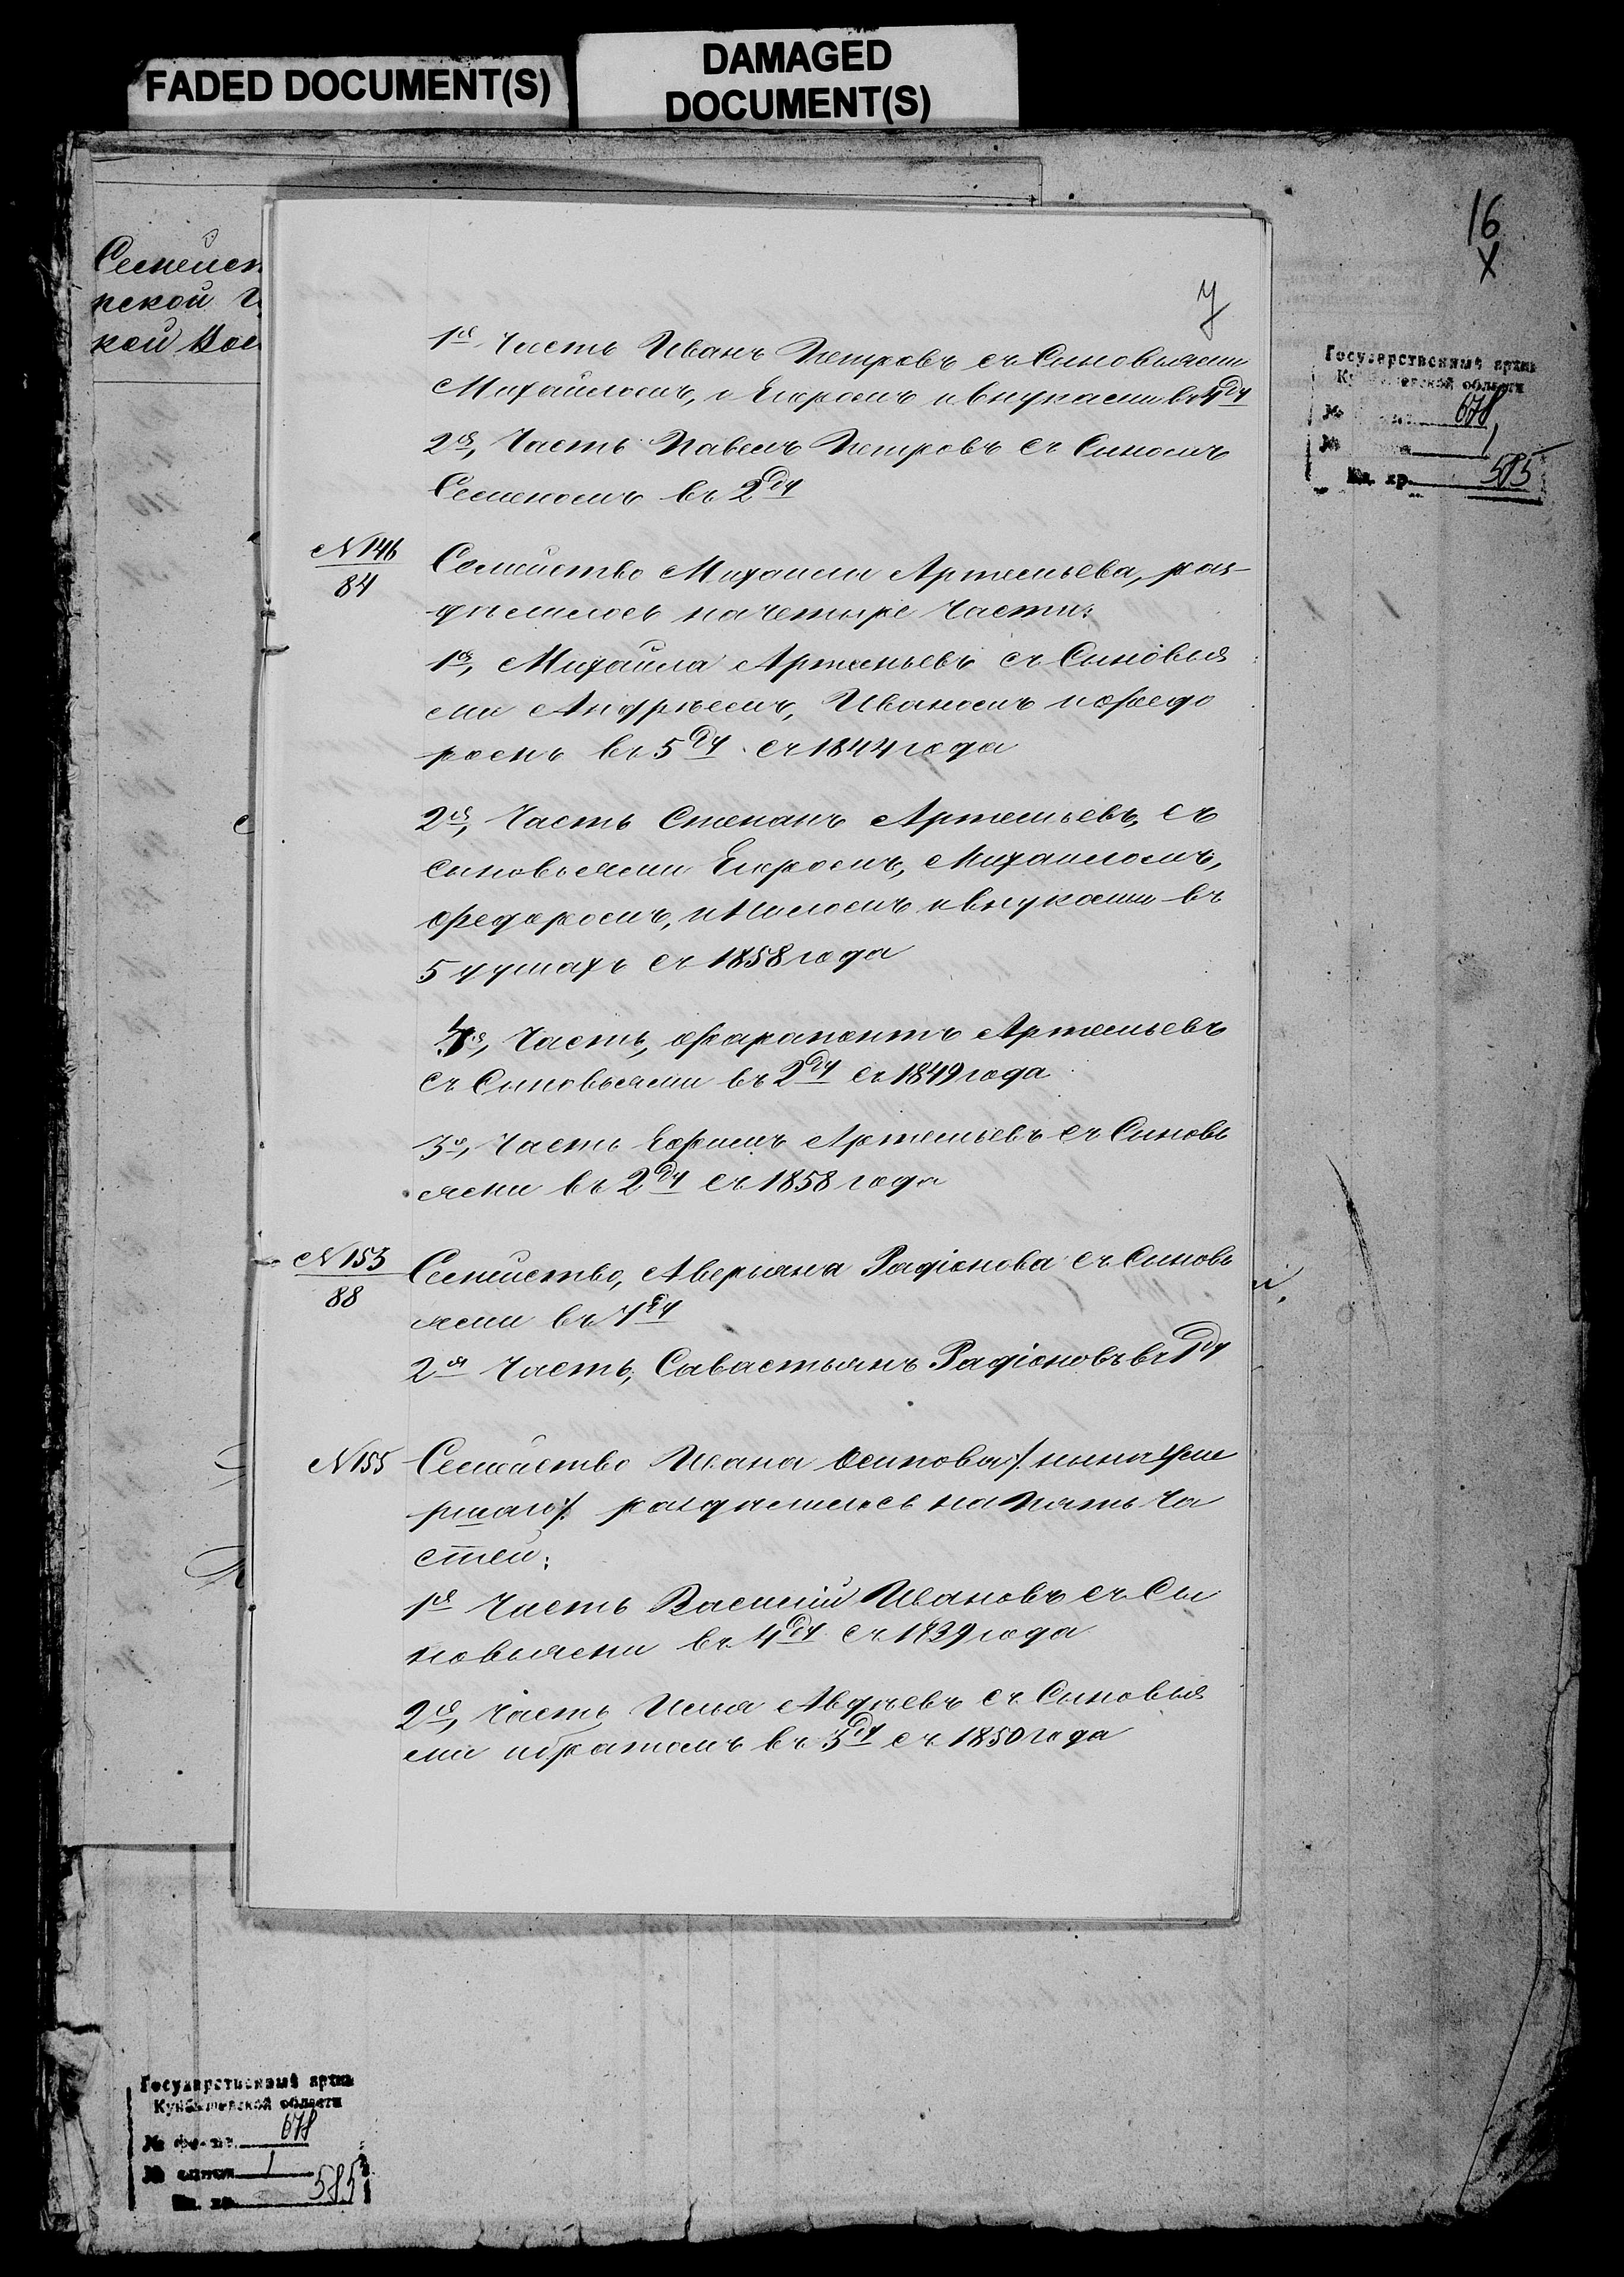 FADED DOCUMENT(S)
DAMAGED
DOCUMENT(S)
16
Государственный архив
Куйбышевской области
№ 678
№ 1
Ед. хр. 585
Семейст
кой Вол
1я, Часть Иванъ Петровъ съ Сыновьями
Михайломъ, и Егоромъ и внуками въ 4 ду
2я, Часть Павелъ Петровъ съ Сыномъ
Семеномъ въ 2 ду
№ 146
84
Семейство Михаила Артемьева, раз-
делилось на четыре части:
1я, Михайла Артемьевъ съ Сыновья
ми Андреемъ, Иваномъ и Федо
ромъ въ 5 ду съ 1844 года
2я, Часть Степанъ Артемьевъ, съ
сыновьями Егоромъ, Михайломъ,
Федоромъ, и внуками въ
5 душахъ съ 1858 года
Часть, Фарапонтъ Артемьевъ
съ Сыновьями въ 2 ду съ 1849 года
3я, Часть Ефимъ Артемьевъ съ Сыновь
ями въ 2 ду съ 1858 года
№ 153
88
Семейство, Аверьяна Радіонова съ Сыновь
ями въ ду
2я Часть, Савастьянъ Радіоновъ въ ду
№ 155
Семейство Ивана Осипова /: ныне Уме
ршаго :/ разделилось на Пять Ча
стей:
1я Часть Василий Ивановъ съ Сы
новьями въ 4 ду съ 1839 года
2я, Часть Илья Авдеевъ съ Сыновья
ми и братомъ въ 3 ду съ 1850 года
Государственный архив
Куйбышевской области
№ фонда 678
№ описи 1
Ед. хр. 585